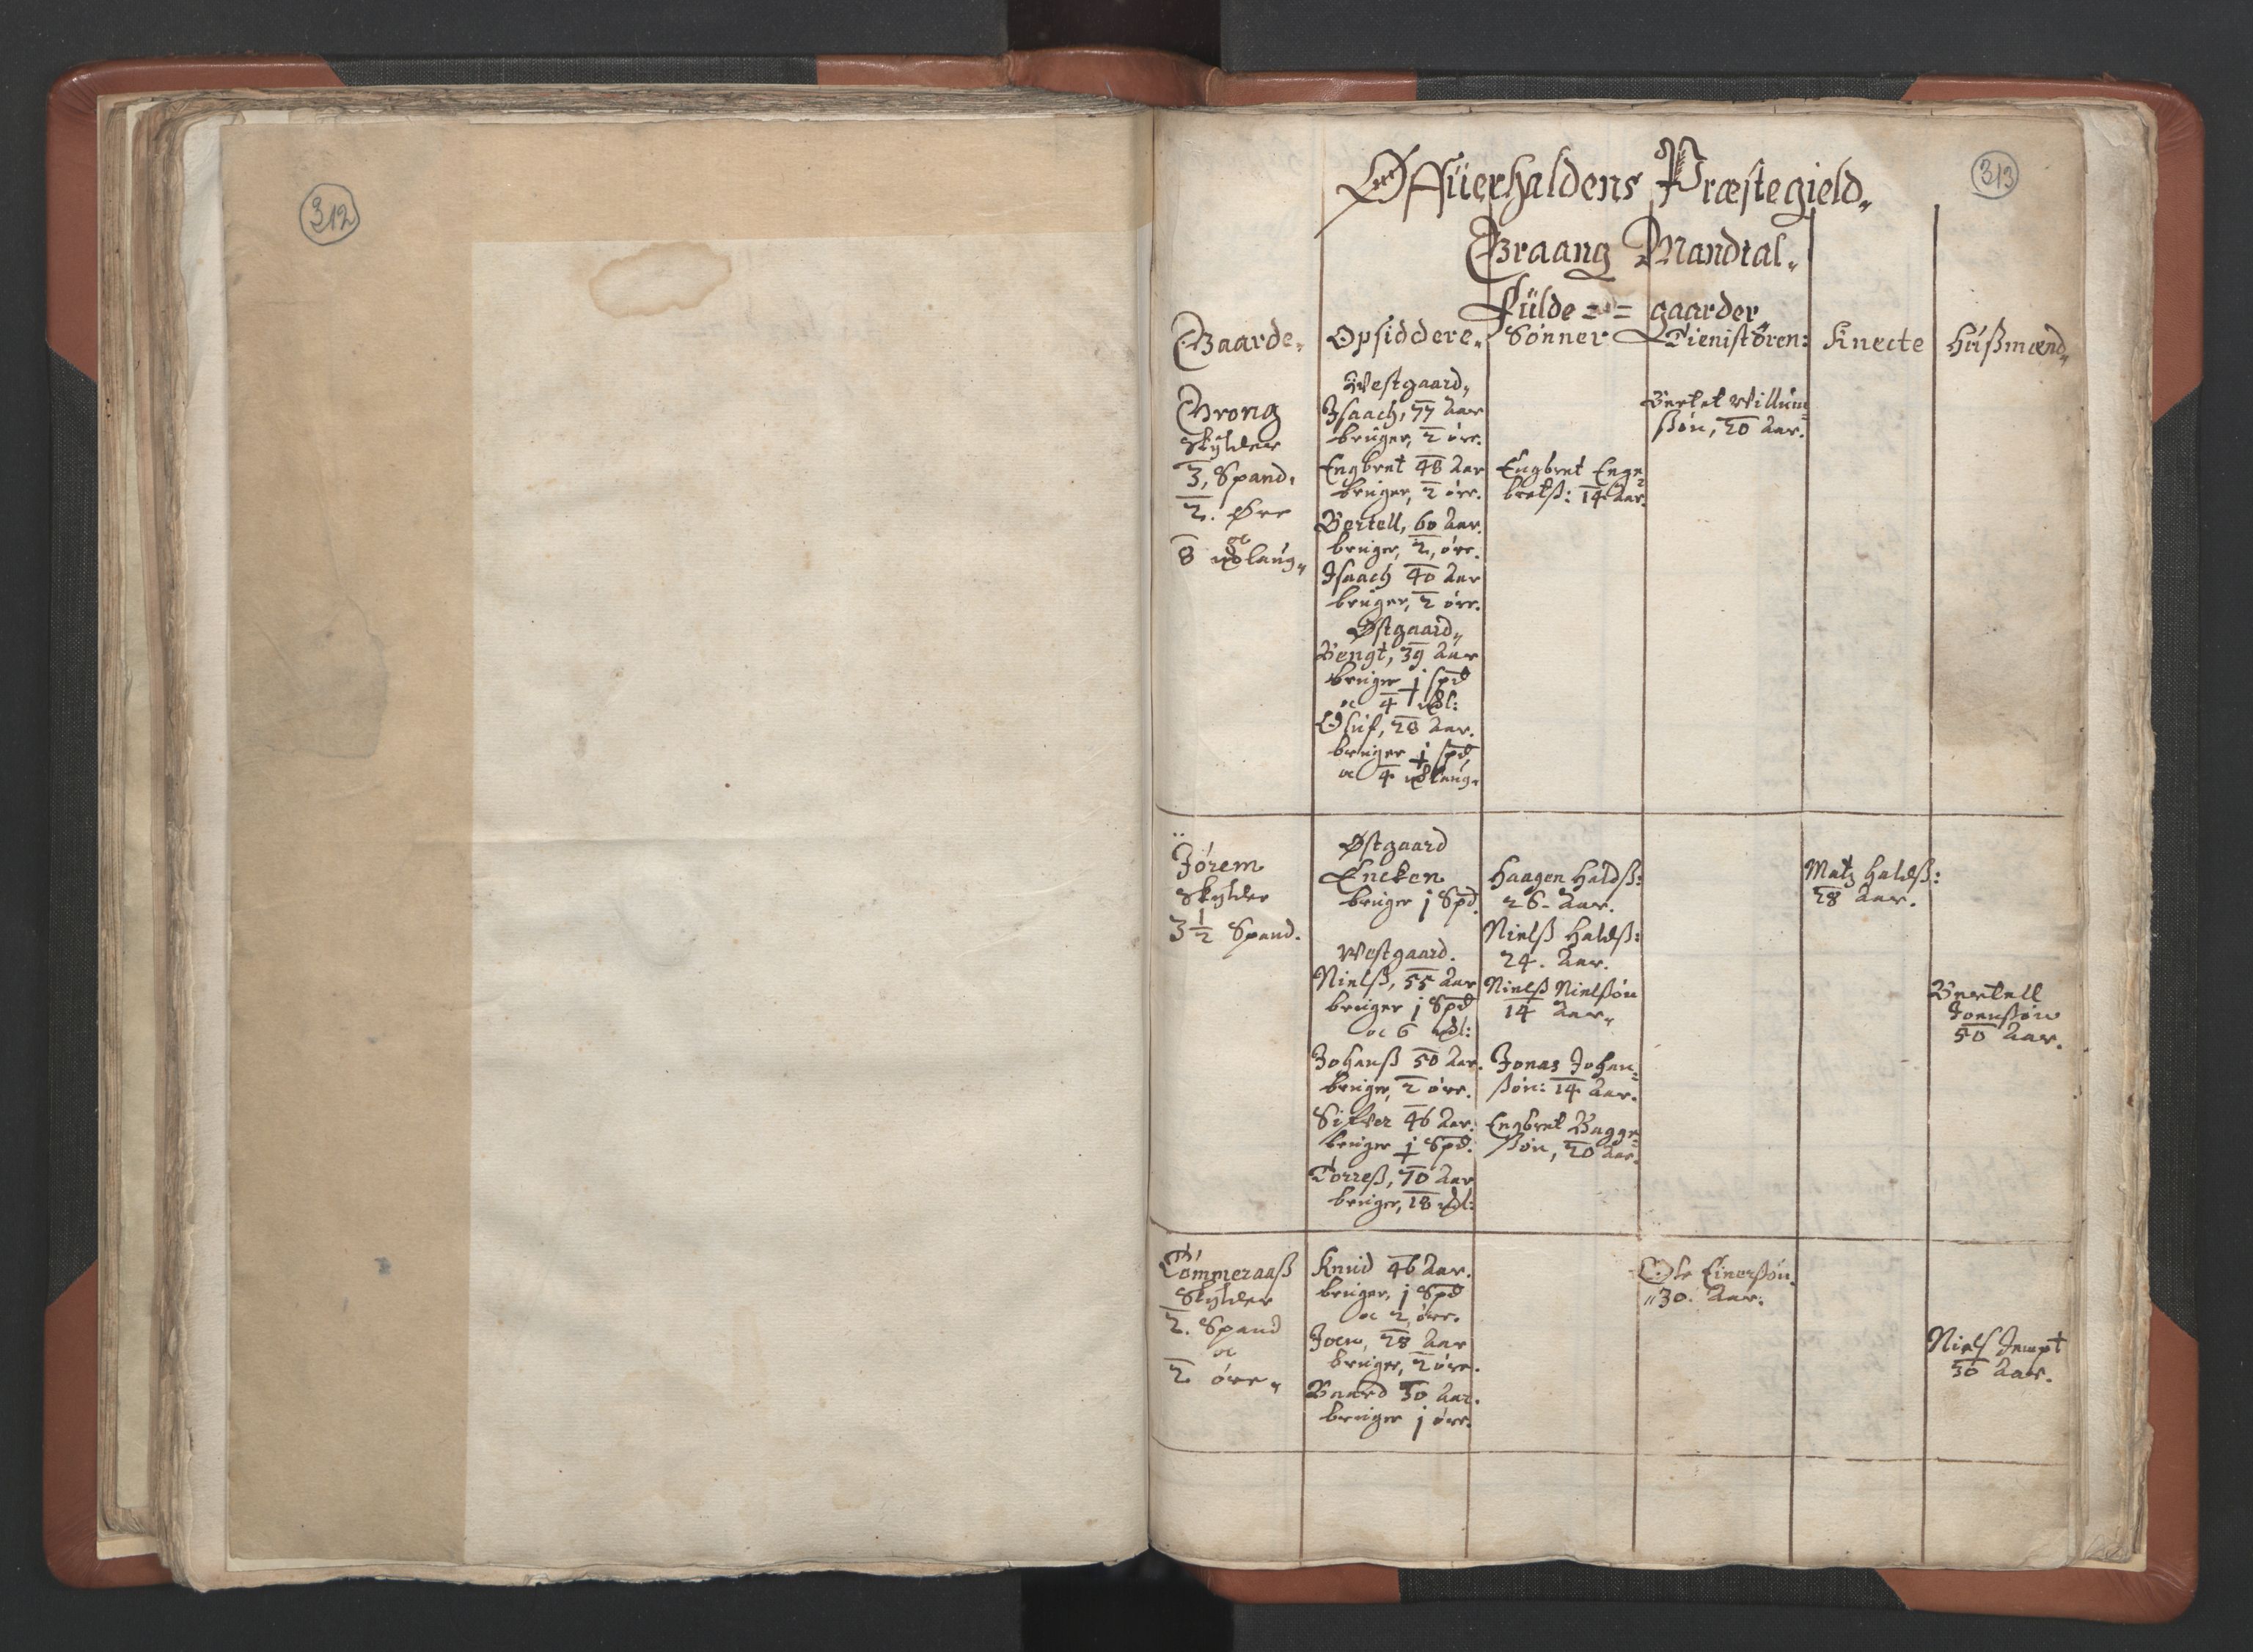 312
313
Offüerhaldens Præstegield„
Graang Mandtal„
Fülde == gaarder„
Gaarde„ Opsiddere„ Sønner Tienistören: Knecte Hüßmænd„
Grong
Skylder
3, Spand,
2. Øre
oc
8 ß laug„
Westgaard„
Isaach, 77 Aar
bruger, 2 öre.
Engbret 48 Aar
bruger, 2 öre.
Bertell, 60 Aar.
bruger, 2, öre.
Isaach 40 Aar
bruger, 2 öre.
Østgaard„
Bengt, 39 Aar
bruger j spd
oc 4 ßl:
Oluf, 28 Aar.
bruger j spd
oc 4 laug.
Engbret Enge
bretß: 14 Aar.
Bertel Willum=
ßön, 20 Aar.
Jörem
Skylder
3½ Spand.
Østgaard
Encken
bruger j Spd.
Westgaard.
Nielß, 55 Aar
bruger j Spd
oc 6 ßl:
Johanß 50 Aar.
bruger, 2 öre.
Sifver 46 Aar.
bruger j Spd.
Torreß, 70 Aar
bruger, 18 ßl:
Haagen Haldß:
26. Aar.
Nielß Haldß:
24. Aar.
Nielß Nielßön
14 Aar„
Jonas Johan=
ßön: 14 Aar.
Engbret Bagge=
ßön, 20 Aar.
Matz Haldß:
28 Aar.
Bertell
Joenßön
50 Aar.
Tömmeraaß
Skylder
2. Spand
oc
2 öre„
Knud 46 Aar.
bruger, j Spd
oc 2 öre.
Joen, 28 Aar
bruger, 2 öre.
Baard 30 Aar.
bruger j öre.
Ole Einerßön.
„30. Aar.
Niels Jempt
30 Aar.